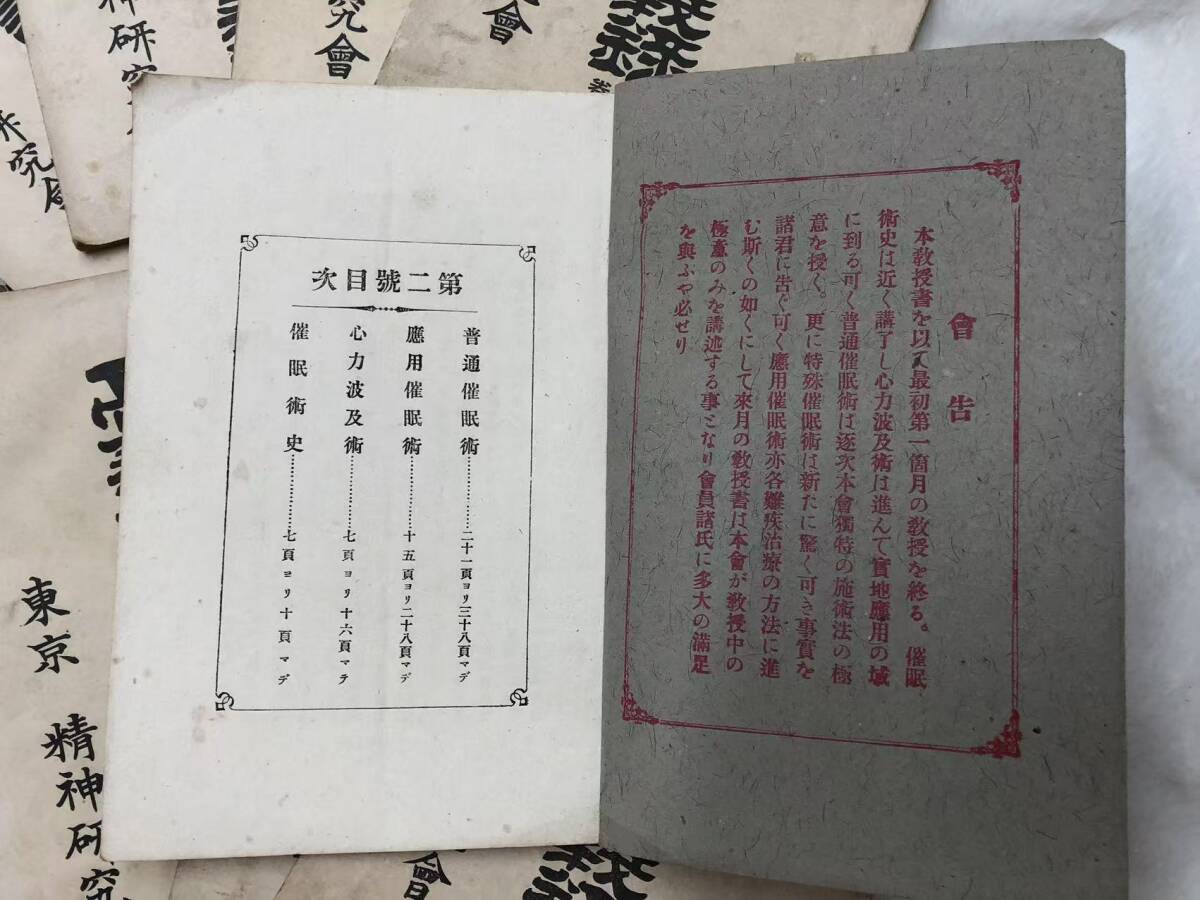 會告
本敎授書を以て最初第一箇月の敎授を終る。催眠
術史は近く講了し心力波及術は進んで實地應用の域
に到る可く普通催眠術は逐次本會獨特の施術法の極
意を授く。更に特殊催眠術は新たに驚く可き事實を
諸君に告ぐ可く應用催眠術亦各難疾治療の方法に進
む斯くの如くにして來月の敎授書は本會が敎授中の
極意のみを講述する事となり會員諸氏に多大の滿足
を與ふや必せり
第二號目次
普通催眠術…………二十一頁ヨリ三十八頁マデ
應用催眠術…………十五頁ヨリ二十八頁マデ
心力波及術…………七頁ヨリ十六頁マテ
催眠術史…………七頁ヨリ十頁マデ
東京 精神研究
神研究
究會
會
研究
會